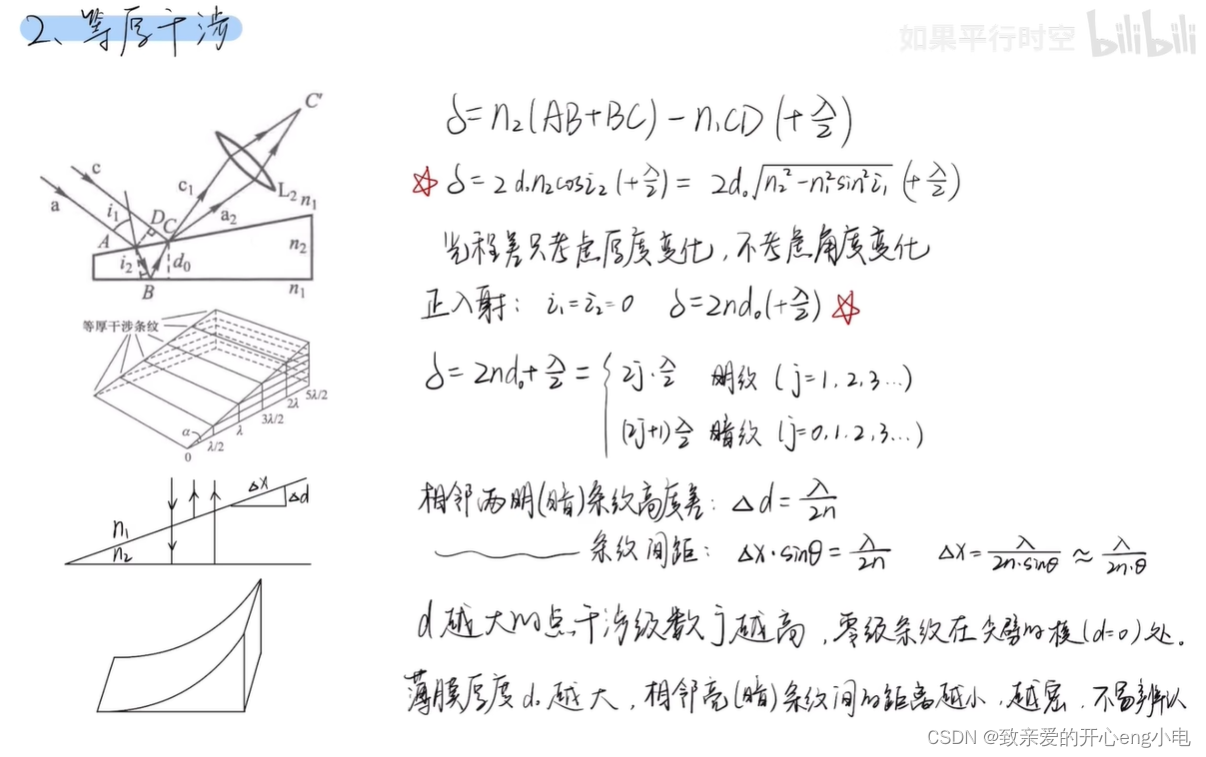 2、等厚干涉
如果平行时空 bilibili
C'
c
c₁
L₂
a
i₁
D
C
a₂
n₁
A
n₂
i₂
d₀
B
n₁
等厚干涉条纹
α
0
λ/2
λ
3λ/2
2λ
5λ/2
Δx
Δd
n₁
n₂
δ=n₂(AB+BC)-n₁CD(+λ/2)
☆ δ=2d₀n₂cosi₂(+λ/2)=2d₀√(n₂²-n₁²sin²i₁)(+λ/2)
光程差只考虑厚度变化,不考虑角度变化
正入射: i₁=i₂=0 δ=2nd₀(+λ/2)☆
δ=2nd₀+λ/2={2j·λ/2 明纹 (j=1,2,3…)
(2j+1)λ/2 暗纹 (j=0,1,2,3…)
相邻两明(暗)条纹高度差: Δd=λ/2n
条纹间距: Δx·sinθ=λ/2n Δx=λ/2n·sinθ≈λ/2n·θ
d越大的点干涉级数j越高,零级条纹在尖劈的棱(d=0)处.
薄膜厚度d₀越大,相邻亮(暗)条纹间的距离越小,越密,不易辨认
CSDN @致亲爱的开心eng小电